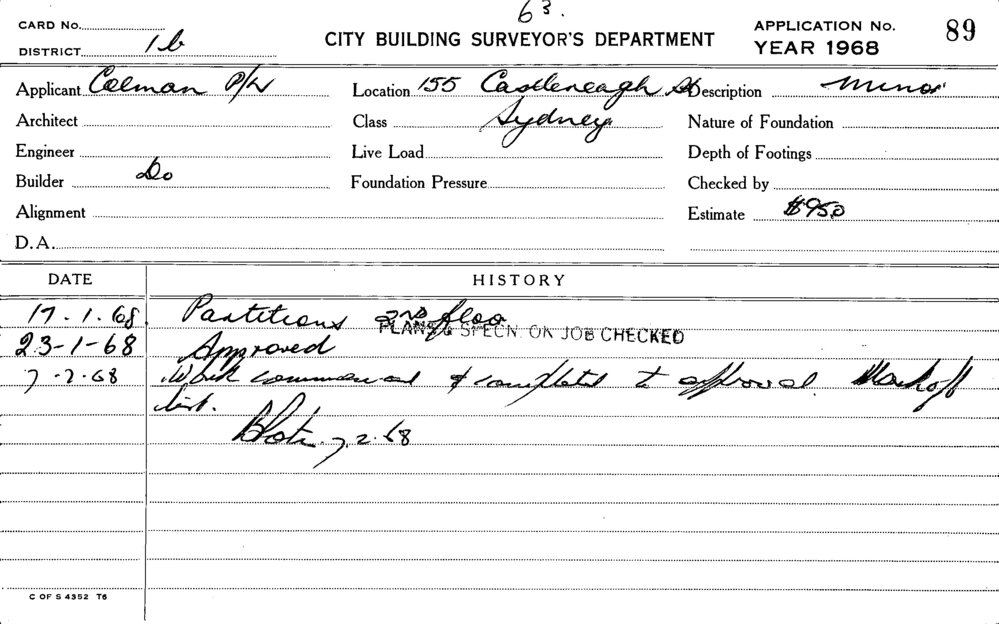 63.
CARD No.
DISTRICT 1b
CITY BUILDING SURVEYOR'S DEPARTMENT
APPLICATION No. 89
YEAR 1968
Applicant Colman P/L Location 155 Castlereagh St Description Minor
Architect Class Sydney Nature of Foundation
Engineer Live Load Depth of Footings
Builder Do Foundation Pressure Checked by
Alignment Estimate $950
D.A.
DATE HISTORY
17.1.68. Partitions 2nd floor
PLANS & SPECN. ON JOB CHECKED
23-1-68 Approved
7-2-68 Work commenced & completed to approval. Mark off
list.
7.2.68
C OF S 4352 T6